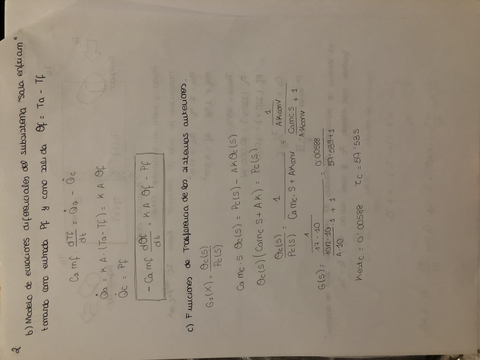 2
b) Modelo de ecuaciones diferenciales del subsistema "Sala enfriam"
tomando como entrada Pf y como salida θf = Ta - Tf
Ca mf dTf/dt = Q̇a - Q̇c
Q̇a = K·A·(Ta-Tf) = K A θf
Q̇c = Pf
- Ca mf dθf/dt = K A θf - Pf
c) Funciones de Trasferencia de los sistemas anteriores.
G1(X) = θc(S)/Pc(S)
Ca mc·S θc(S) = Pc(S) - AKθc(S)
θc(S)(Camc S + AK) = Pc(S)
θc(S)/Pc(S) = 1/(Camc S + AKconv) = (1/AKconv)/((Camc S/AKconv) + 1)
0'00588
57'059+1
Kest c = 0'00588 τc = 57'533